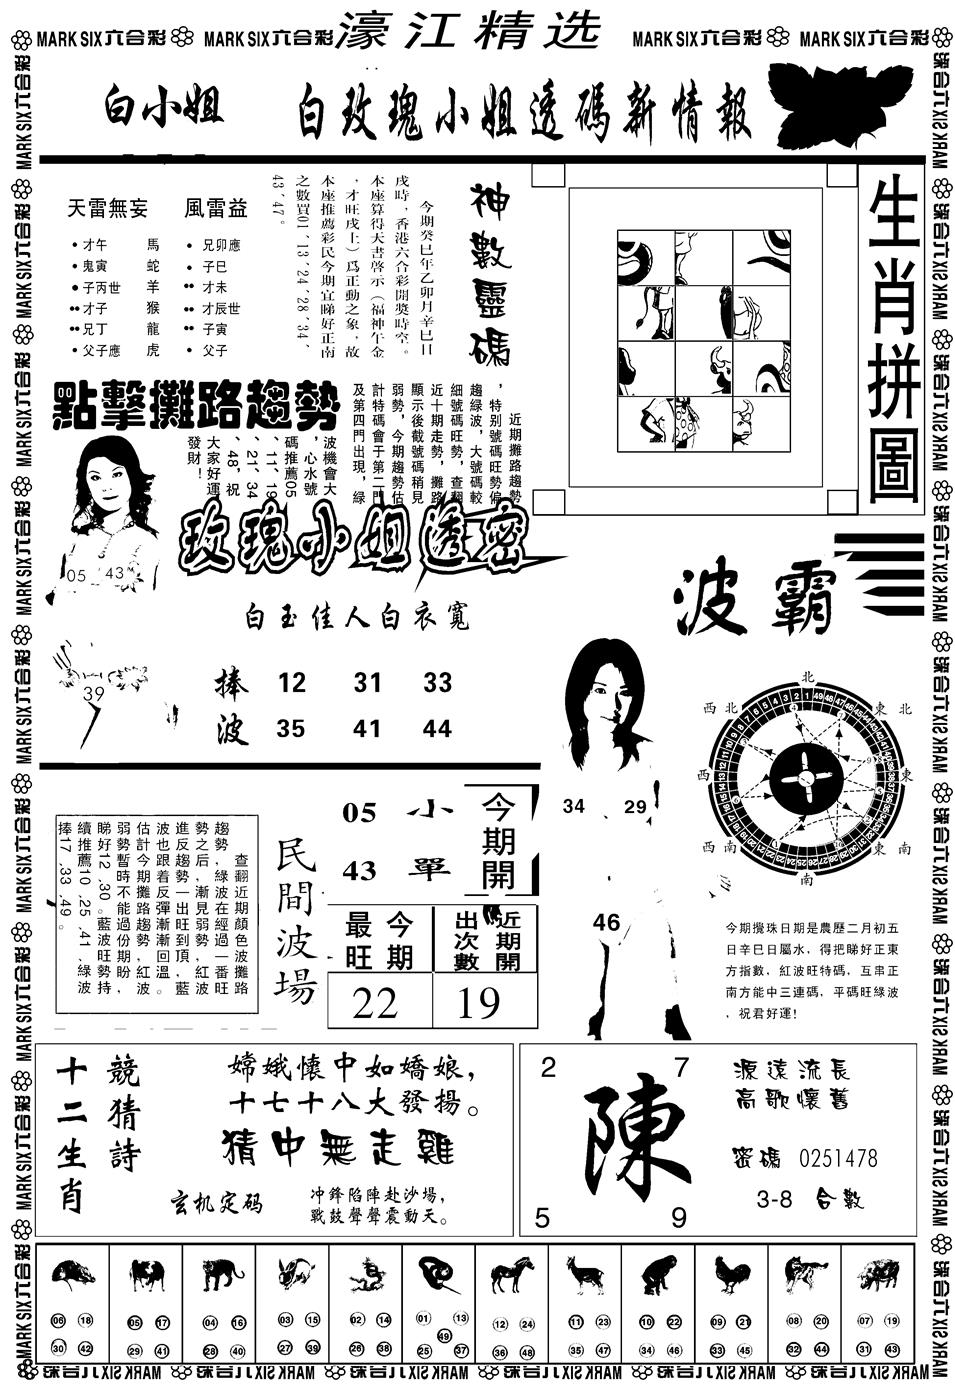 MARK SIX六合彩 MARK SIX六合彩 濠江精选 MARK SIX六合彩 MARK SIX六合彩
白小姐 白玫瑰小姐透碼新情報
天雷無妄 風雷益
才午 馬 兄卯應
鬼寅 蛇 子巳
子丙世 羊 才未
才子 猴 才辰世
兄丁 龍 子寅
父子應 虎 父子
神數靈碼
今期癸巳年乙卯月辛巳日
戌時，香港六合彩開獎時空。
本座算得天書啓示（福神午金
，才旺戌土）爲正動之象，故
本座推薦彩民今期宜睇好正南
之數買01、13、24、28、34、
43、47。
生肖拼圖
點擊攤路趨勢
近期攤路趨勢
，特別號碼旺勢偏
趨綠波，大號碼較
細號碼旺勢，查翻
近十期走勢，攤路
顯示後截號碼稍見
弱勢，今期趨勢估
計特碼會于第二門
及第四門出現，綠
波機會大
，心水號
碼推薦05
、11、19
、21、34
、48，祝
大家好運
發財！
05 43
39
玫瑰小姐透密
白玉佳人白衣寬
捧 12 31 33
波 35 41 44
波霸
北
西北 東北
西 東
西南 東南
南
34 29
46
查翻近期顏色波攤路
趨勢，綠波在經過一番旺
勢之后，漸見弱勢，紅波
進反趨勢一出旺到頂，藍
波也跟着反彈漸漸回溫。
估計今期攤路趨勢紅波
弱勢暫時不能過份期盼，
睇好12、30。藍波旺勢持
續推薦10、25、41、綠波
捧17、33、49。
民間波場
05 小
43 單
今期開
今期最旺
22
近期開出次數
19
今期攪珠日期是農歷二月初五
日辛巳日屬水，得把睇好正東
方指數，紅波旺特碼，互串正
南方能中三連碼，平碼旺綠波
，祝君好運！
競猜詩
十二生肖
嫦娥懷中如嬌娘，
十七十八大發揚。
猜中無走雞
玄机定码
冲鋒陷陣赴沙場，
戰鼓聲聲震動天。
2 7
陳
5 9
源遠流長
高歌懷舊
密碼 0251478
3-8 合數
06 18 30 42
05 17 29 41
04 16 28 40
03 15 27 39
02 14 26 38
01 13 49 25 37
12 24 36 48
11 23 35 47
10 22 34 46
09 21 33 45
08 20 32 44
07 19 31 43